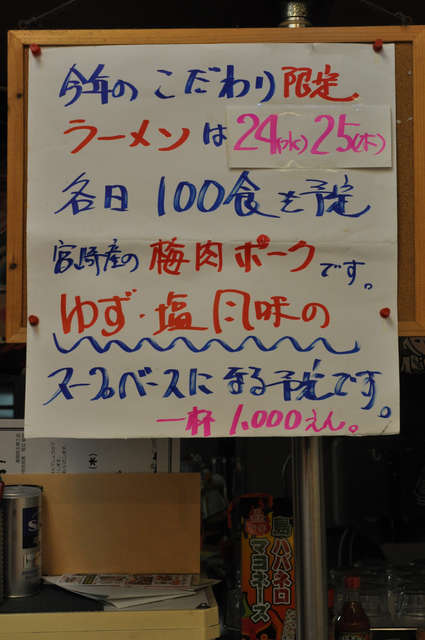 今年の こだわり 限定
ラーメンは 24(水) 25(木)
各日 100食を予定
宮崎産の 梅肉ポークです。
ゆず・塩風味の
スープベースになる予定です。
一杯 1,000えん。
ハバネロ
マヨネーズ